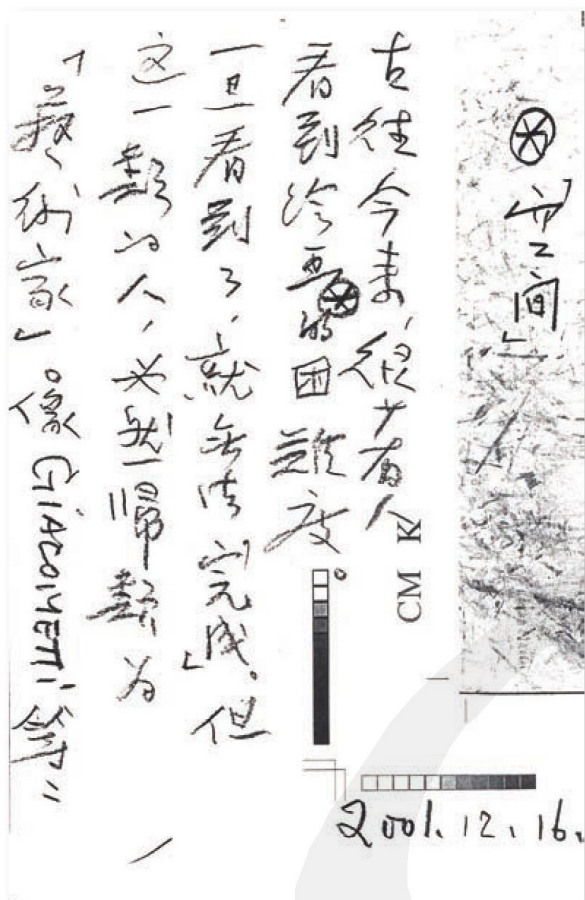 ⊛「空间」
古往今来，很少有人
看到这要⊛的困難度。
一旦看到了，就無法「完成」。但
这一類的人，必然歸類为
「藝術家」。像 GIACOMETTI 等"
CM K
2001.12.16.